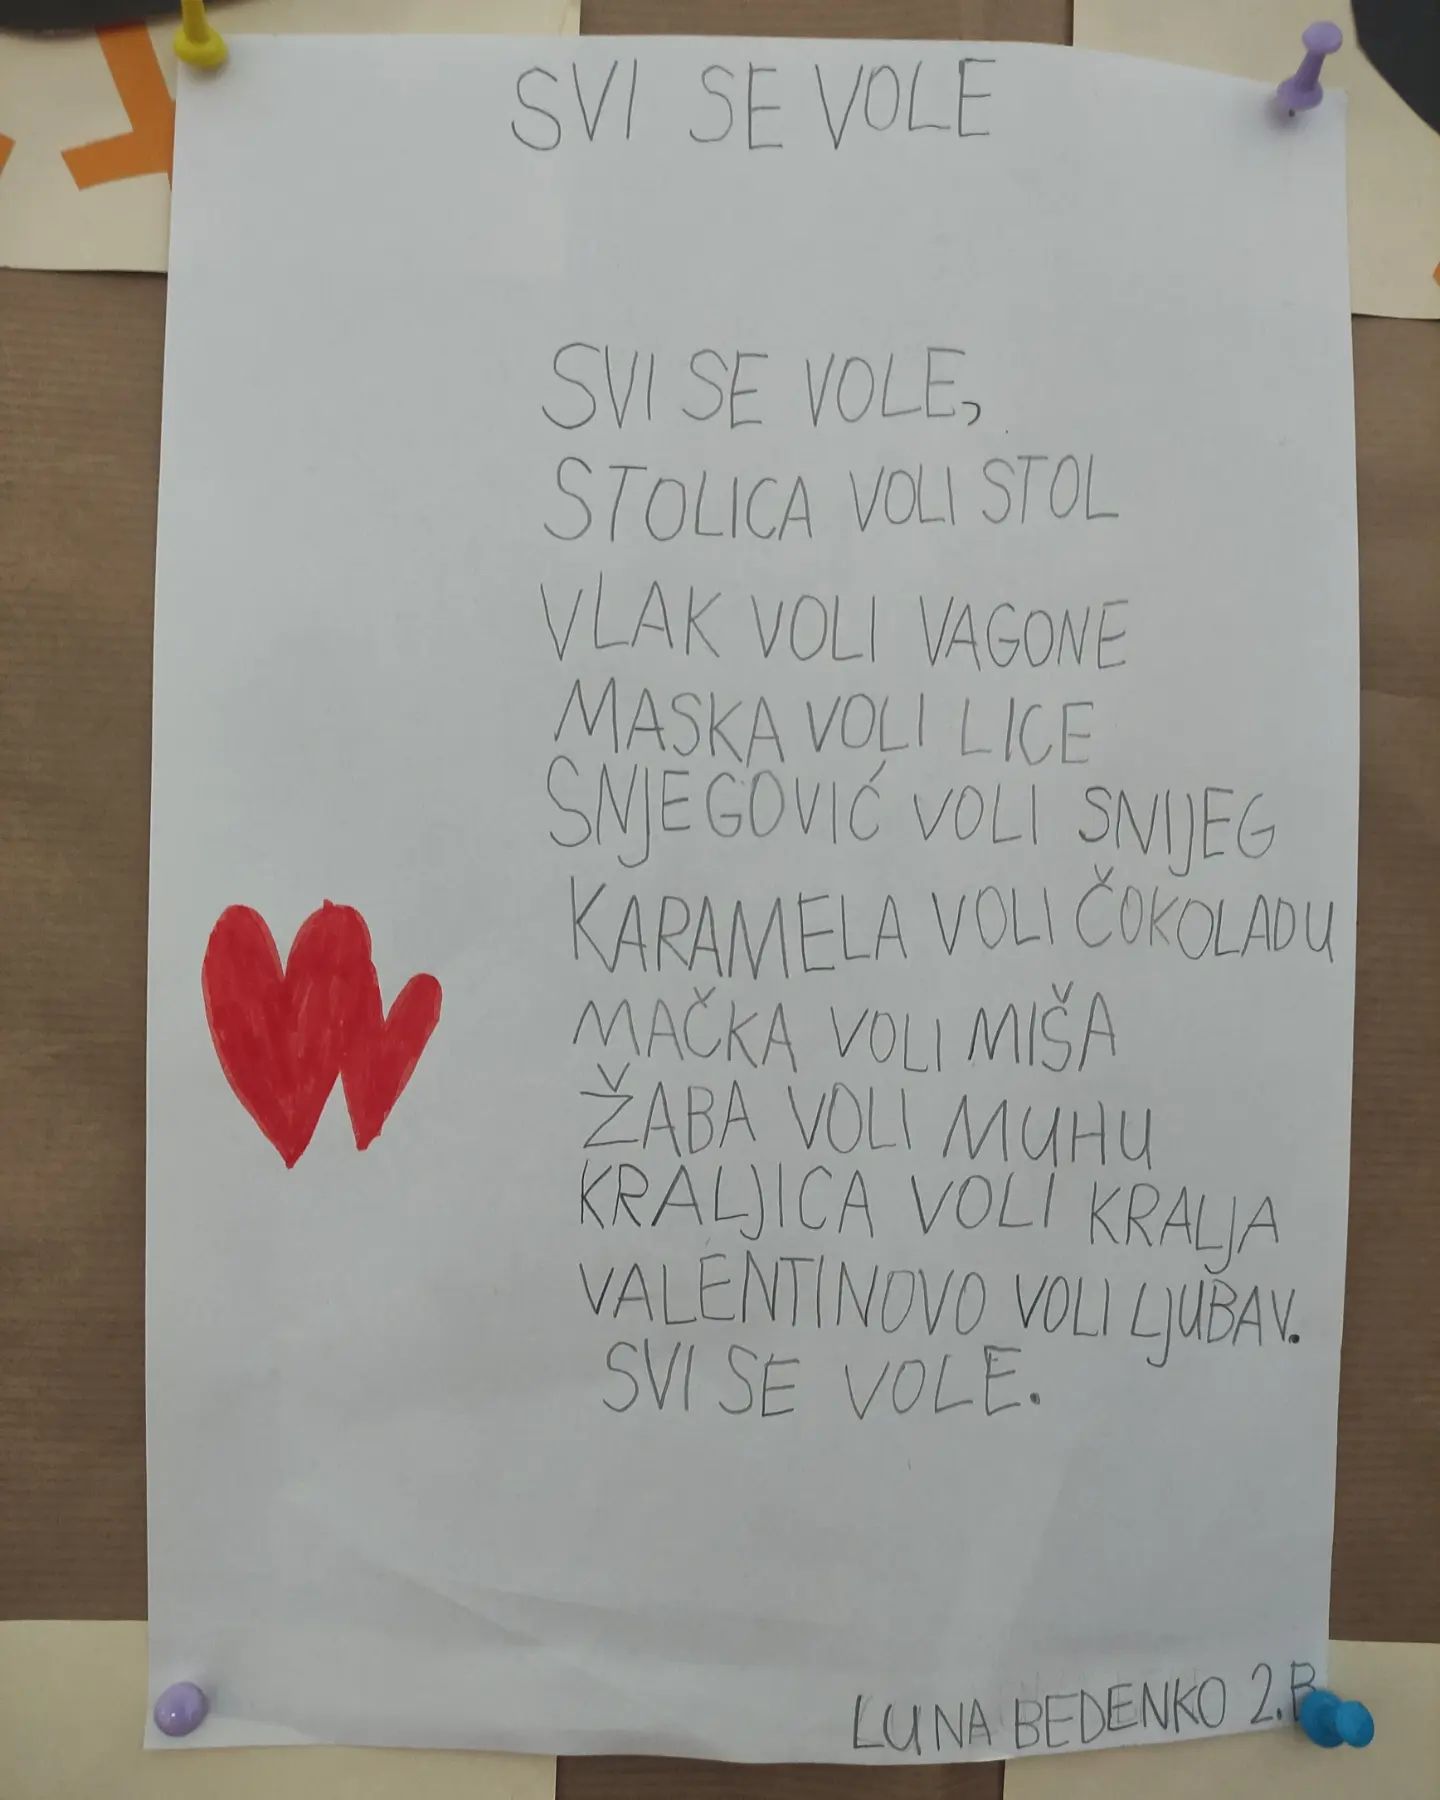 SVI SE VOLE
SVI SE VOLE,
STOLICA VOLI STOL
VLAK VOLI VAGONE
MASKA VOLI LICE
SNJEGOVIĆ VOLI SNIJEG
KARAMELA VOLI ČOKOLADU
MAČKA VOLI MIŠA
ŽABA VOLI MUHU
KRALJICA VOLI KRALJA
VALENTINOVO VOLI LJUBAV.
SVI SE VOLE.
LUNA BEDENKO 2.B